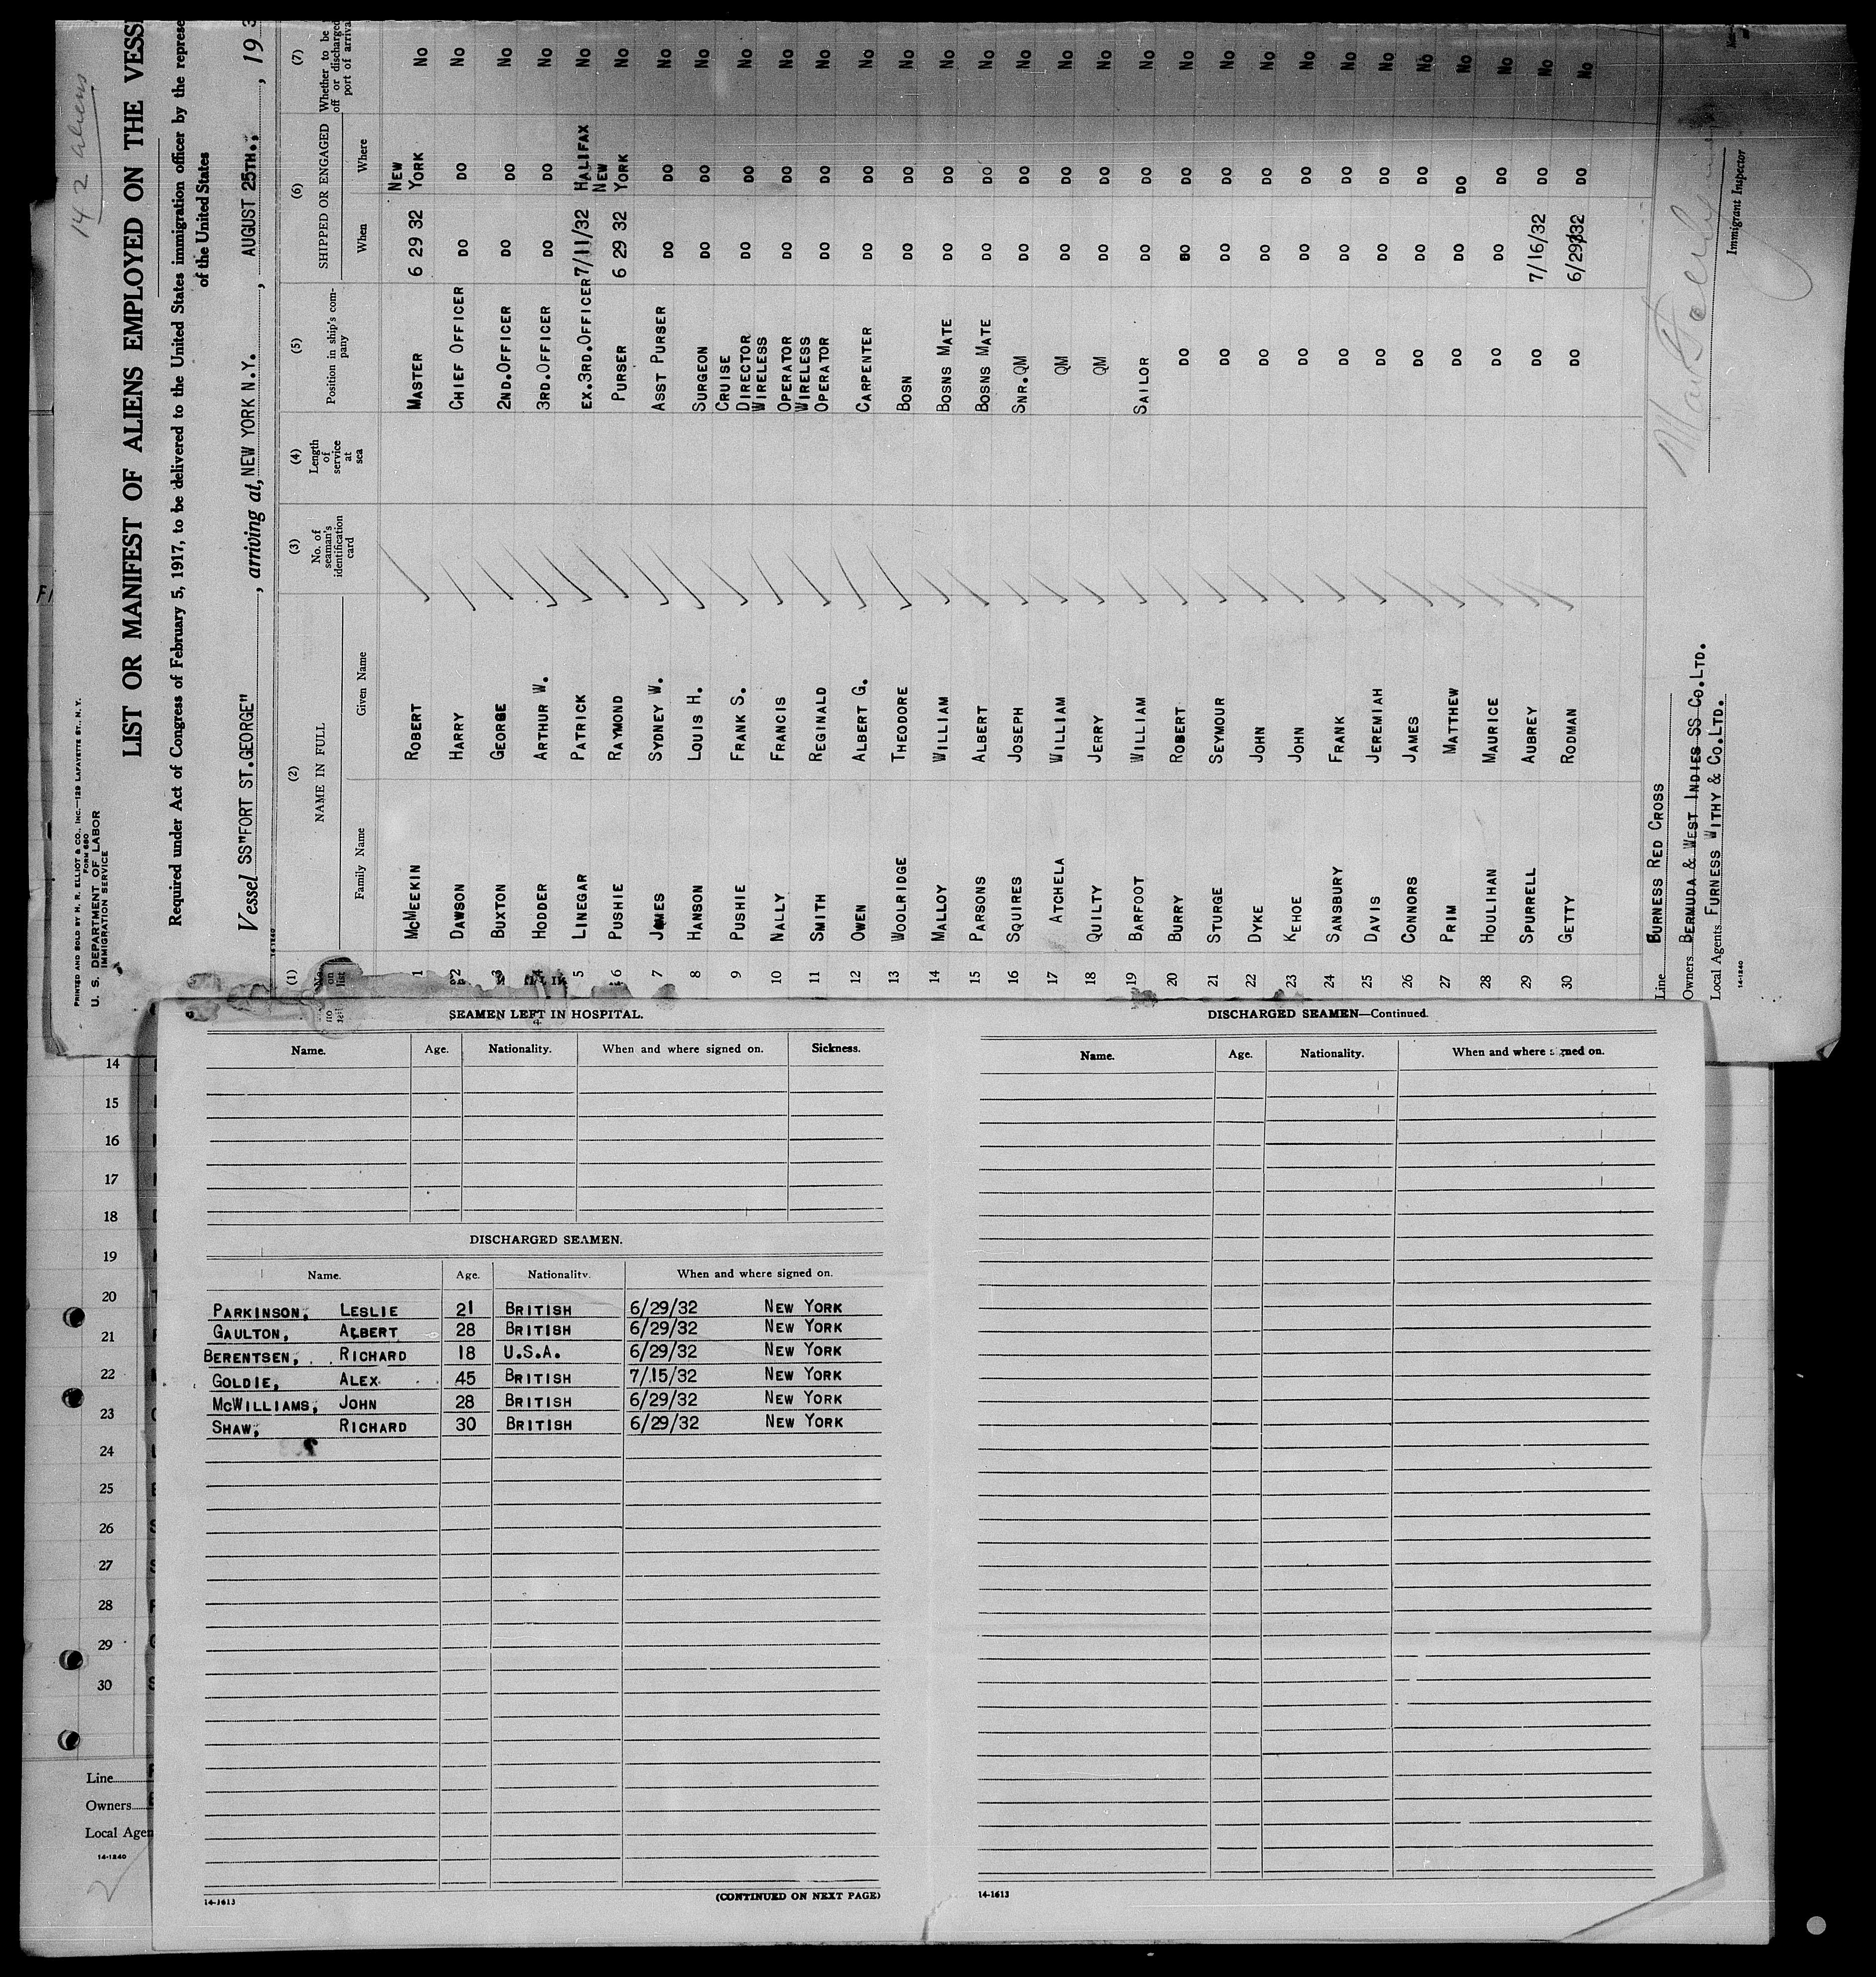 14 2 aliens
PRINTED AND SOLD BY H. R. ELLIOT & CO., INC.—129 LAFAYETTE ST., N. Y.
FORM 680
U. S. DEPARTMENT OF LABOR
IMMIGRATION SERVICE
LIST OR MANIFEST OF ALIENS EMPLOYED ON THE
Required under Act of Congress of February 5, 1917, to be delivered to the United States immigration officer by the
of the United States
Vessel SS"FORT ST.GEORGE", arriving at, NEW YORK N.Y., AUGUST 25TH., 19
14-1240
(1) (2) (3) (4) (5) (6) (7)
No. on list NAME IN FULL No. of seaman's identification card Length of service at sea Position in ship's company SHIPPED OR ENGAGED Whether to be off or discharged port of
Family Name Given Name When Where
1 MCMEEKIN ROBERT MASTER 6 29 32 NEW YORK NO
2 DAWSON HARRY CHIEF OFFICER DO DO NO
3 BUXTON GEORGE 2ND.OFFICER DO DO NO
4 HODDER ARTHUR W. 3RD.OFFICER DO DO NO
5 LINEGAR PATRICK EX.3RD.OFFICER 7/11/32 HALIFAX NO
6 PUSHIE RAYMOND PURSER 6 29 32 NEW YORK NO
7 JAMES SYDNEY W. ASST PURSER DO DO NO
8 HANSON LOUIS H. SURGEON DO DO NO
9 PUSHIE FRANK S. CRUISE DIRECTOR DO DO NO
10 NALLY FRANCIS WIRELESS OPERATOR DO DO NO
11 SMITH REGINALD WIRELESS OPERATOR DO DO NO
12 OWEN ALBERT G. CARPENTER DO DO NO
13 WOOLRIDGE THEODORE BOSN DO DO NO
14 MALLOY WILLIAM BOSNS MATE DO DO NO
15 PARSONS ALBERT BOSNS MATE DO DO NO
16 SQUIRES JOSEPH SNR.QM DO DO NO
17 ATCHELA WILLIAM QM DO DO NO
18 QUILTY JERRY QM DO DO NO
19 BARFOOT WILLIAM SAILOR DO DO NO
20 BURRY ROBERT DO DO DO NO
21 STURGE SEYMOUR DO DO DO NO
22 DYKE JOHN DO DO DO NO
23 KEHOE JOHN DO DO DO NO
24 SANSBURY FRANK DO DO DO NO
25 DAVIS JEREMIAH DO DO DO NO
26 CONNORS JAMES DO DO DO NO
27 PRIM MATTHEW DO DO DO NO
28 HOULIHAN MAURICE DO DO DO NO
29 SPURRELL AUBREY DO 7/16/32 DO NO
30 GETTY RODMAN DO 6/29/32 DO NO
Line BURNESS RED CROSS
Owners BERMUDA & WEST INDIES SS CO.LTD.
Local Agents FURNESS WITHY & CO.LTD.
14-1240
Immigrant Inspector
SEAMEN LEFT IN HOSPITAL.
Name. Age. Nationality. When and where signed on. Sickness.
DISCHARGED SEAMEN.
Name. Age. Nationality. When and where signed on.
PARKINSON, LESLIE 21 BRITISH 6/29/32 NEW YORK
GAULTON, ALBERT 28 BRITISH 6/29/32 NEW YORK
BERENTSEN, RICHARD 18 U.S.A. 6/29/32 NEW YORK
GOLDIE, ALEX 45 BRITISH 7/15/32 NEW YORK
MCWILLIAMS, JOHN 28 BRITISH 6/29/32 NEW YORK
SHAW, RICHARD 30 BRITISH 6/29/32 NEW YORK
14-1613
(CONTINUED ON NEXT PAGE)
DISCHARGED SEAMEN—Continued.
Name. Age. Nationality. When and where signed on.
14-1613
14
15
16
17
18
19
20
21
22
23
24
25
26
27
28
29
30
Line
Owners
Local
14-1240
2